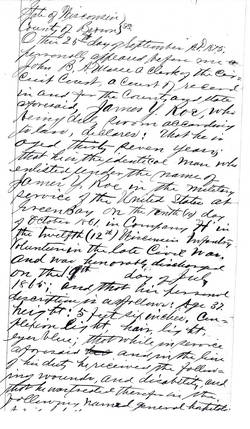 State of Wisconsin
County of Brown
On this 25th day of September A.D. 1875,
personally appeared before me
John B. A. a Clerk of the Cir-
cuit Court, a court of record
in and for the County and state
aforesaid, James Y. Roe, who
being duly sworn according
to law, declares: That he is
aged thirty seven years;
that he is the identical man who
enlisted under the name of
James Y. Roe in the military
service of the United States at
Green Bay, on the day
of October 1861 in Company H in
the Twelfth (12th) Wisconsin Infantry
Volunteers in the late Civil War,
and was honorably discharged
on the day of
1865; and that his personal
description is as follows: Age 37
height; 5 feet six inches, Com-
plexion light, hair, light,
eyes blue; that while in service
aforesaid and in the line
of his duty he received the follow-
ing wounds, and disability; and
that he was treated therefor in the
following named general hospitals: